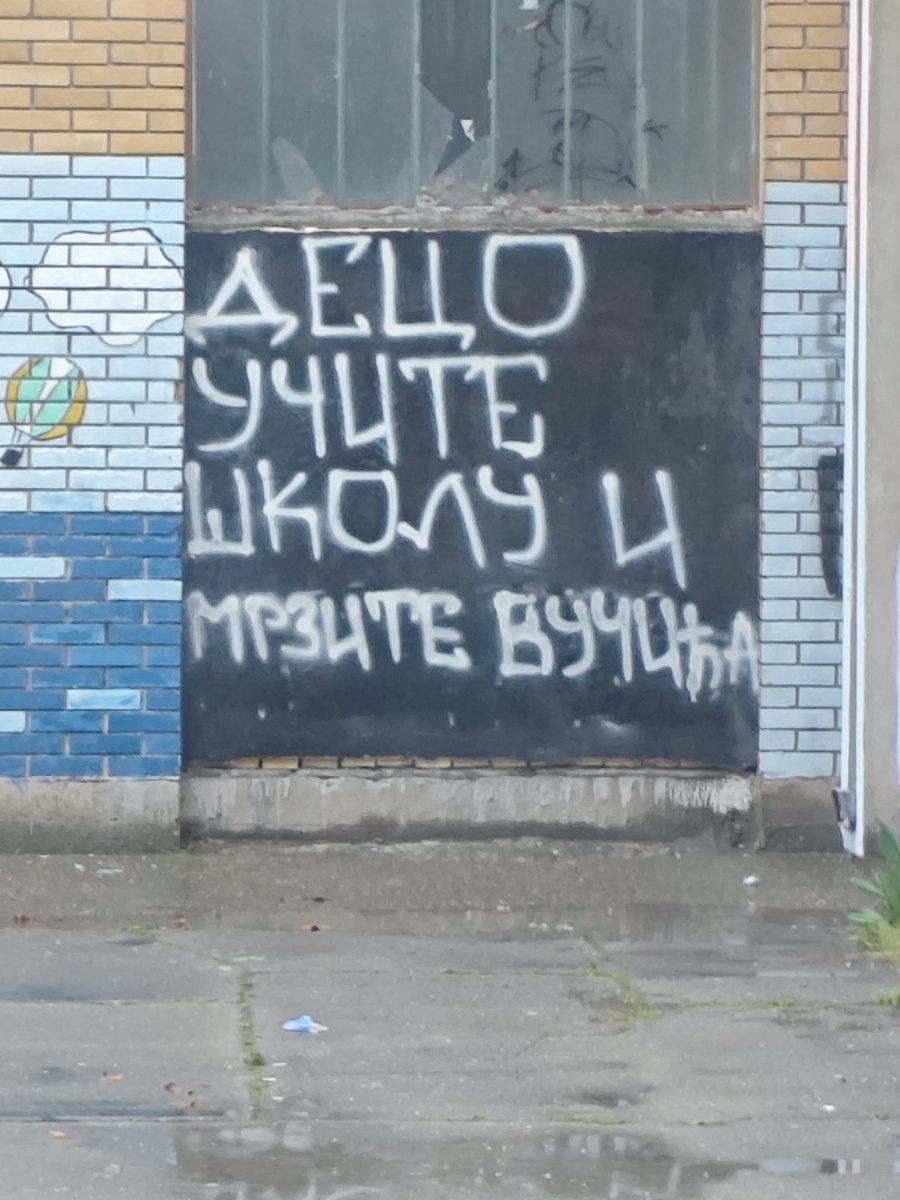 ДЕЦО
УЧИТЕ
ШКОЛУ И
МРЗИТЕ ВУЧИЋА